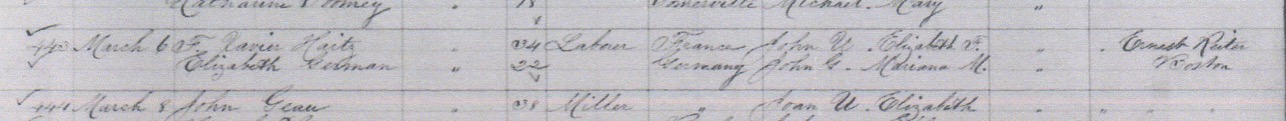 Katharine Toomey " 18 Somerville Michael. Mary "
440 March 6 F. Xavier Haitz " 34 Labour France John U. Elizabeth F. " . Ernest Reiter
Elizabeth German " 22 Germany John G. Mariana M. " Boston
441 March 8 John Geau " 38 Miller " Joan U. Elizabeth " " " "